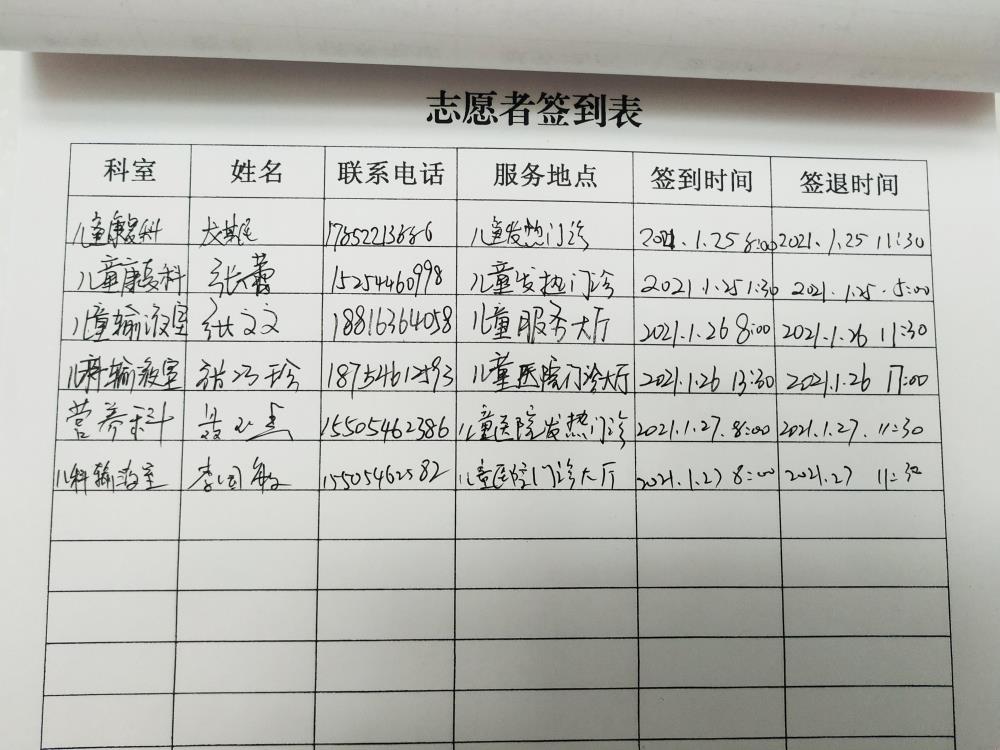 志愿者签到表
科室 姓名 联系电话 服务地点 签到时间 签退时间
儿童康复科 17852213686 儿童发热门诊 2021.1.25 8:00 2021.1.25 11:30
儿童康复科 张蕾 15254460998 儿童发热门诊 2021.1.25 1:30 2021.1.25.5:00
儿童输液室 张文文 18816364058 儿童服务大厅 2021.1.26 8:00 2021.1.26 11:30
儿科输液室 张巧珍 18754612593 儿童医院门诊大厅 2021.1.26 13:30 2021.1.26 17:00
营养科 15505462386 儿童医院发热门诊 2021.1.27.8:00 2021.1.27.11:30
儿科输液室 李国敏 15505462582 儿童医院门诊大厅 2021.1.27 8:00 2021.27 11:30